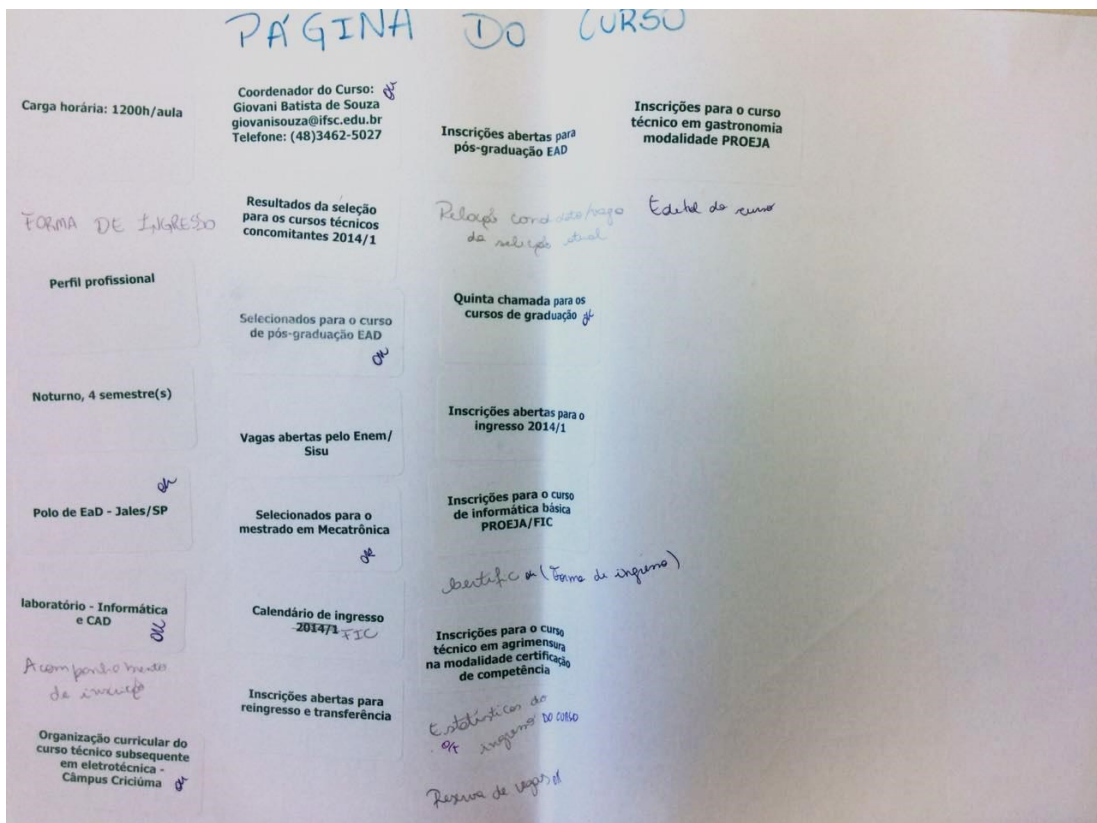 PÁGINA DO CURSO
Carga horária: 1200h/aula
FORMA DE INGRESSO
Perfil profissional
Noturno, 4 semestre(s)
ok
Polo de EaD - Jales/SP
laboratório - Informática
e CAD
ok
Acompanhamento
de inscrição
Organização curricular do
curso técnico subsequente
em eletrotécnica -
Câmpus Criciúma ok
Coordenador do Curso: ok
Giovani Batista de Souza
giovanisouza@ifsc.edu.br
Telefone: (48)3462-5027
Resultados da seleção
para os cursos técnicos
concomitantes 2014/1
Selecionados para o curso
de pós-graduação EAD
ok
Vagas abertas pelo Enem/
Sisu
Selecionados para o
mestrado em Mecatrônica
ok
Calendário de ingresso
2014/1 FIC
Inscrições abertas para
reingresso e transferência
Inscrições abertas para
pós-graduação EAD
Relação candidato/vaga
da seleção atual
Quinta chamada para os
cursos de graduação ok
Inscrições abertas para o
ingresso 2014/1
Inscrições para o curso
de informática básica
PROEJA/FIC
Certific ok (Forma de ingresso)
Inscrições para o curso
técnico em agrimensura
na modalidade certificação
de competência
Estatísticas do
ok ingresso DO CURSO
Reserva de vagas ok
Inscrições para o curso
técnico em gastronomia
modalidade PROEJA
Edital do curso